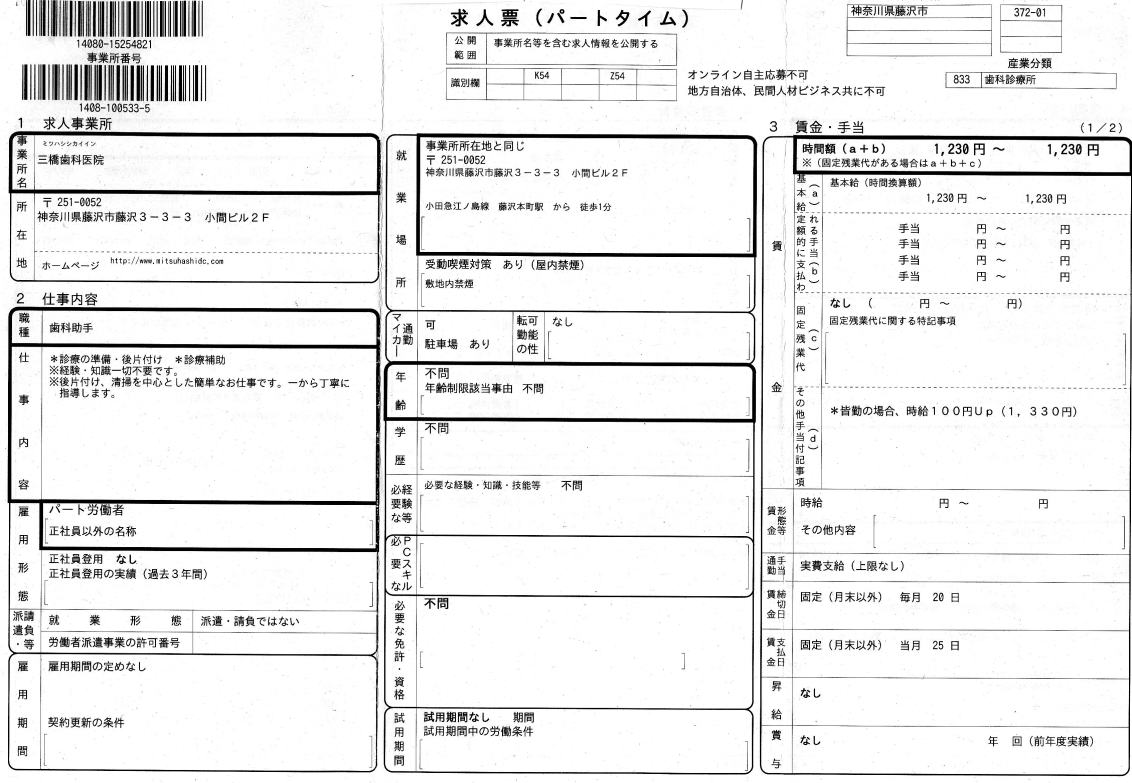 求人票（パートタイム）
14080-15254821
事業所番号
1408-100533-5
公開範囲
事業所名等を含む求人情報を公開する
識別欄
K54
Z54
オンライン自主応募不可
地方自治体、民間人材ビジネス共に不可
神奈川県藤沢市
372-01
産業分類
833 歯科診療所
1 求人事業所
事業所名
ミツハシシカイイン
三橋歯科医院
所在地
〒251-0052
神奈川県藤沢市藤沢３－３－３ 小間ビル２Ｆ
ホームページ http://www.mitsuhashidc.com
2 仕事内容
職種
歯科助手
仕事内容
＊診療の準備・後片付け ＊診療補助
※経験・知識一切不要です。
※後片付け、清掃を中心とした簡単なお仕事です。一から丁寧に
指導します。
雇用形態
パート労働者
正社員以外の名称
正社員登用 なし
正社員登用の実績（過去３年間）
派遣・請負等
就業形態
派遣・請負ではない
労働者派遣事業の許可番号
雇用期間
雇用期間の定めなし
契約更新の条件
就業場所
事業所所在地と同じ
〒251-0052
神奈川県藤沢市藤沢３－３－３ 小間ビル２Ｆ
小田急江ノ島線 藤沢本町駅 から 徒歩1分
受動喫煙対策 あり（屋内禁煙）
敷地内禁煙
マイカー通勤
可
駐車場 あり
転勤の可能性
なし
年齢
不問
年齢制限該当事由 不問
学歴
不問
必要な経験等
必要な経験・知識・技能等 不問
必要なＰＣスキル
必要な免許・資格
不問
試用期間
試用期間なし 期間
試用期間中の労働条件
3 賃金・手当
（１／２）
賃金
時間額（ａ＋ｂ） 1,230円 ～ 1,230円
※（固定残業代がある場合はａ＋ｂ＋ｃ）
基本給（ａ）
基本給（時間換算額）
1,230円 ～ 1,230円
定額的に支払われる手当（ｂ）
手当 円 ～ 円
手当 円 ～ 円
手当 円 ～ 円
手当 円 ～ 円
固定残業代（ｃ）
なし （ 円 ～ 円）
固定残業代に関する特記事項
その他手当付記事項（ｄ）
＊皆勤の場合、時給１００円Ｕｐ（１，３３０円）
賃金形態等
時給 円 ～ 円
その他内容
通勤手当
実費支給（上限なし）
賃金締切日
固定（月末以外） 毎月 20 日
賃金支払日
固定（月末以外） 当月 25 日
昇給
なし
賞与
なし 年 回（前年度実績）